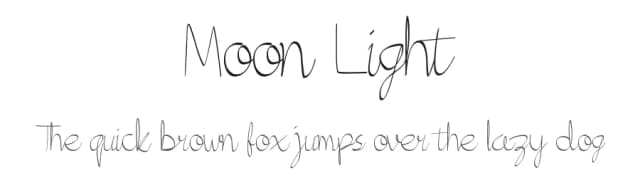 Moon Light
The quick brown fox jumps over the lazy dog